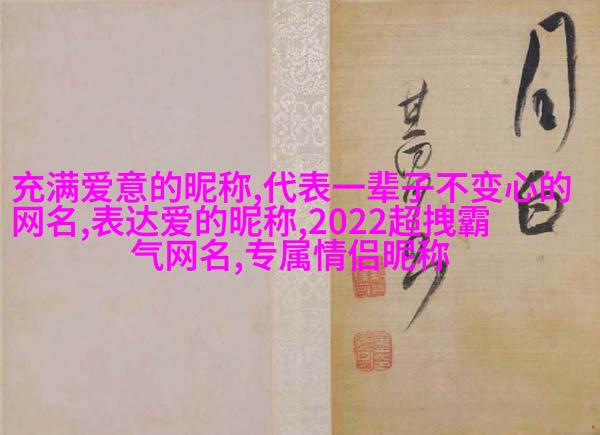 充满爱意的昵称,代表一辈子不变心的
网名,表达爱的昵称,2022超拽霸
气网名,专属情侣昵称